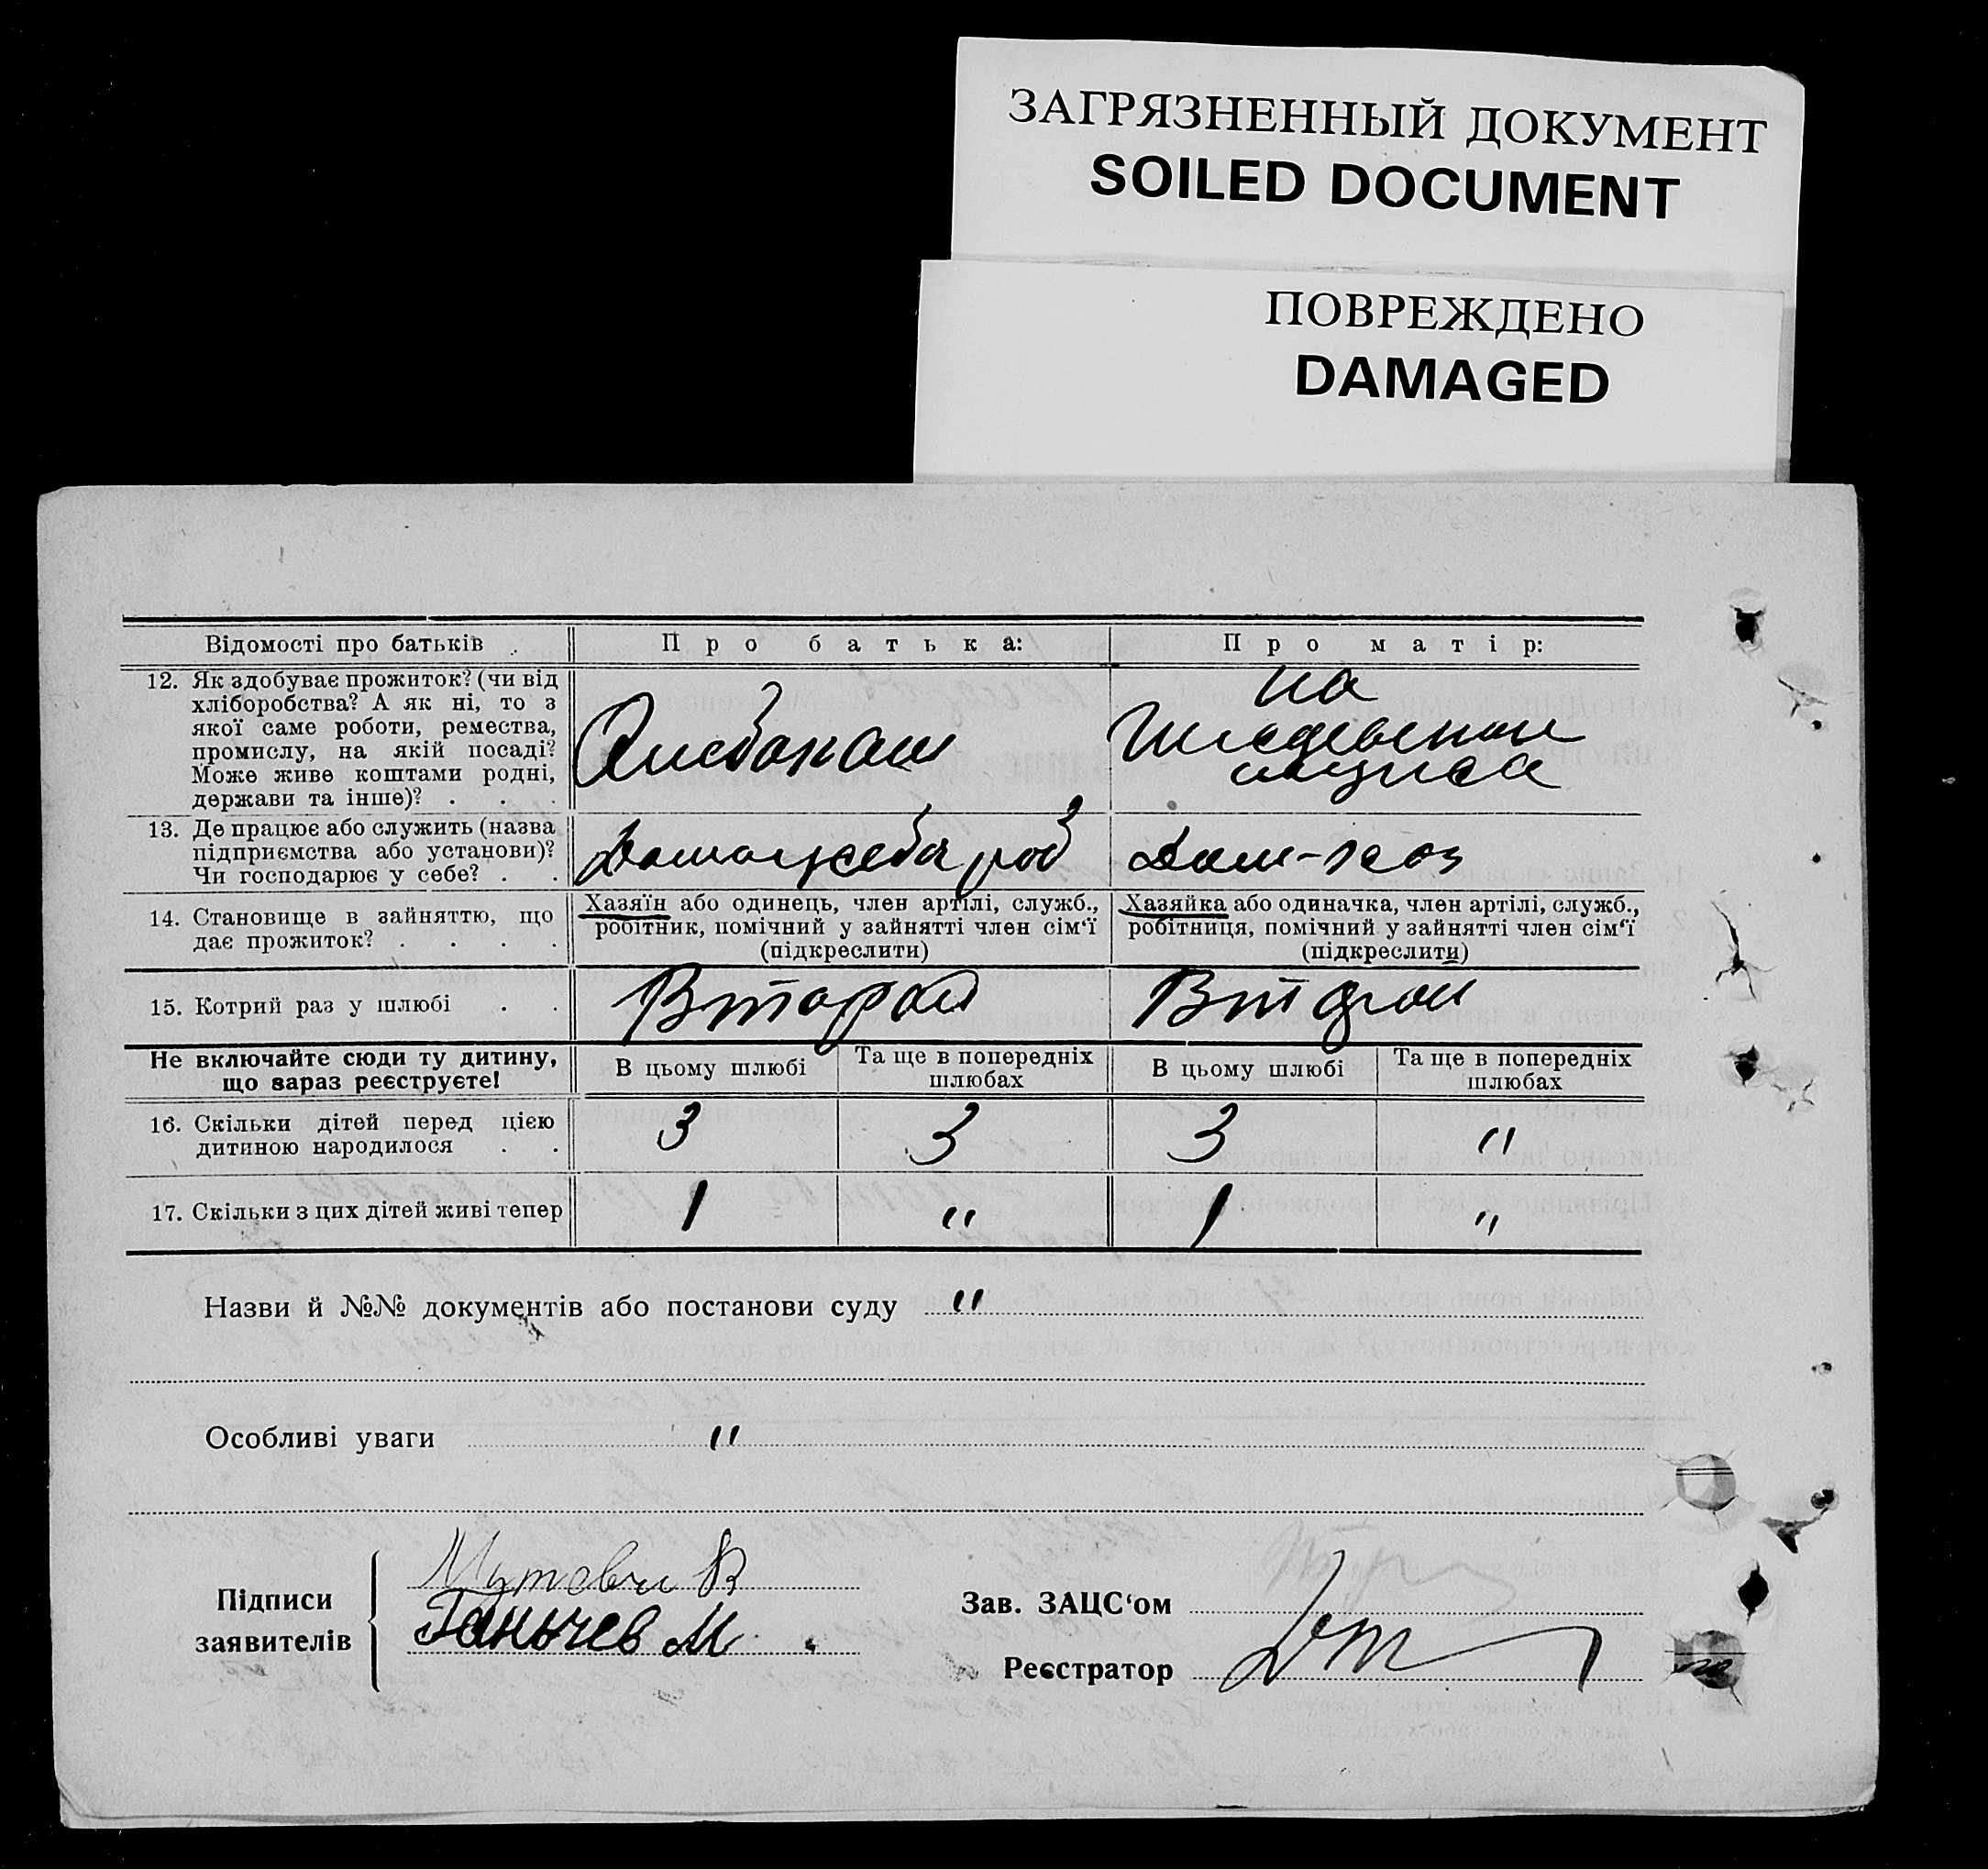 ЗАГРЯЗНЕННЫЙ ДОКУМЕНТ
SOILED DOCUMENT
ПОВРЕЖДЕНО
DAMAGED
Відомості про батьків .
Про батька:
Про матір:
12. Як здобуває прожиток? (чи від
хліборобства? А як ні, то з
якої саме роботи, ремества,
промислу, на якій посаді?
Може живе коштами родні,
держави та інше)? . . .
на
13. Де працює або служить (назва
підприємства або установи)?
Чи господарює у себе? . .
Дом-хоз
14. Становище в зайняттю, що
дає прожиток? . . . .
Хазяїн або одинець, член артілі, служб.,
робітник, помічний у зайнятті член сім‘ї
(підкреслити)
Хазяйка або одиначка, член артілі, служб.,
робітниця, помічний у зайнятті член сім‘ї
(підкреслити)
15. Котрий раз у шлюбі . .
Второй
Второй
Не включайте сюди ту дитину,
що зараз реєструєте!
В цьому шлюбі
Та ще в попередніх
шлюбах
В цьому шлюбі
Та ще в попередніх
шлюбах
16. Скільки дітей перед цією
дитиною народилося . .
3
3
3
"
17. Скільки з цих дітей живі тепер
1
"
1
"
Назви й №№ документів або постанови суду "
Особливі уваги "
Підписи
заявителів
М
Зав. ЗАЦС‘ом
Реєстратор